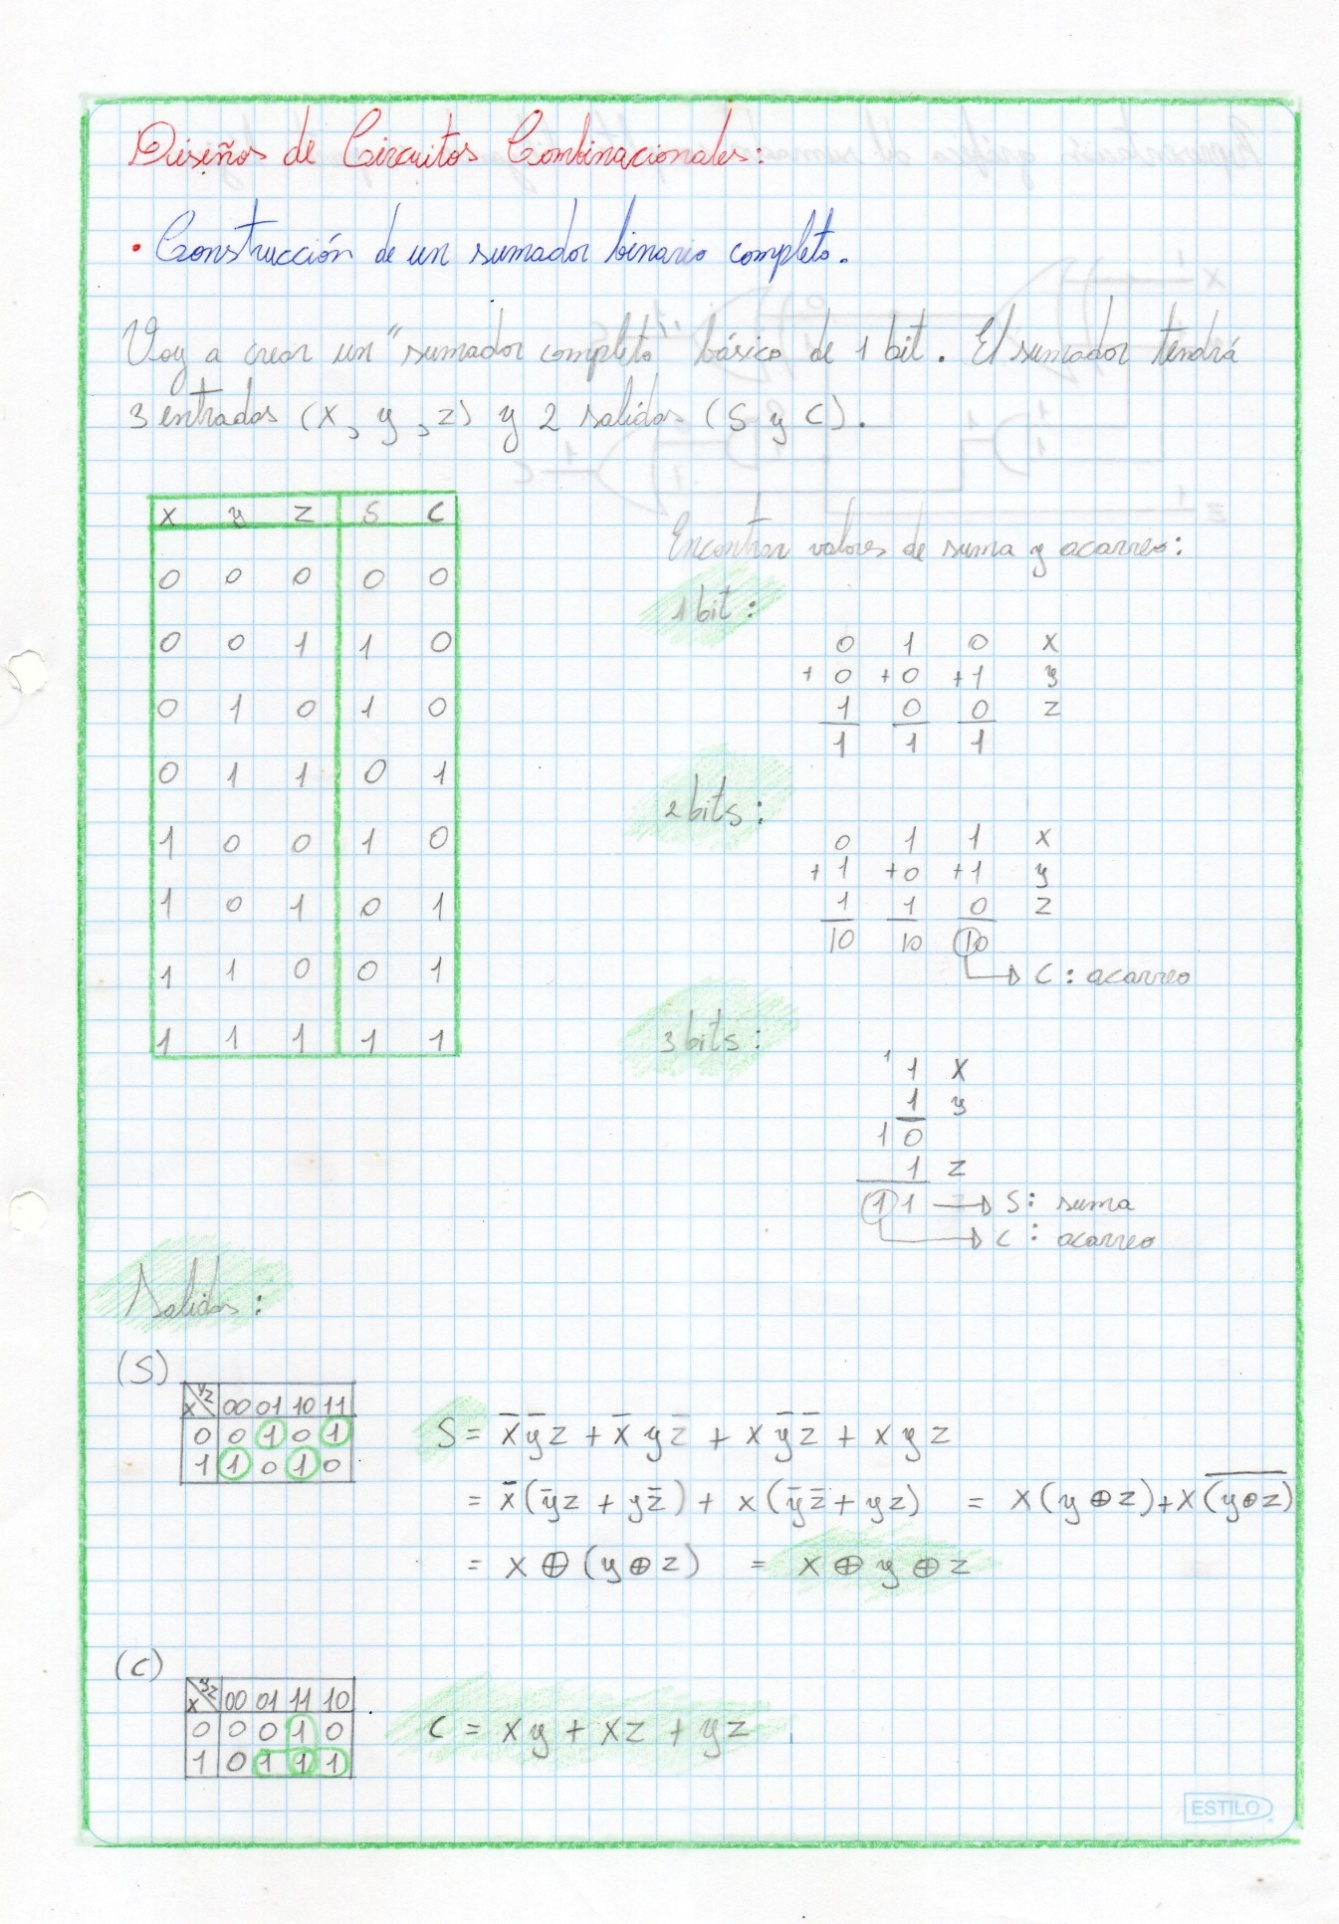 Diseños de Circuitos Combinacionales:
• Construcción de un sumador binario completo.
Voy a crear un "sumador completo" básico de 1 bit. El sumador tendrá
3 entradas (x, y, z) y 2 salidas (S y C).
x y z S C
0 0 0 0 0
0 0 1 1 0
0 1 0 1 0
0 1 1 0 1
1 0 0 1 0
1 0 1 0 1
1 1 0 0 1
1 1 1 1 1
Encontrar valores de suma y acarreo:
1 bit:
0 1 0 x
+0 +0 +1 y
1 0 0 z
1 1 1
2 bits:
0 1 1 x
+1 +0 +1 y
1 1 0 z
10 10 10
C: acarreo
3 bits:
1 1 x
1 y
1 0
1 z
1 1 → S: suma
C: acarreo
Salidas:
(S)
x yz 00 01 10 11
0 0 1 0 1
1 1 0 1 0
S = x̅y̅z + x̅yz̅ + xy̅z̅ + xyz
= x̅(y̅z + yz̅) + x(y̅z̅ + yz) = x(y⊕z)+x(y⊕z)̅
= x⊕(y⊕z) = x⊕y⊕z
(C)
x yz 00 01 11 10
0 0 0 1 0
1 0 1 1 1
C = xy + xz + yz
ESTILO